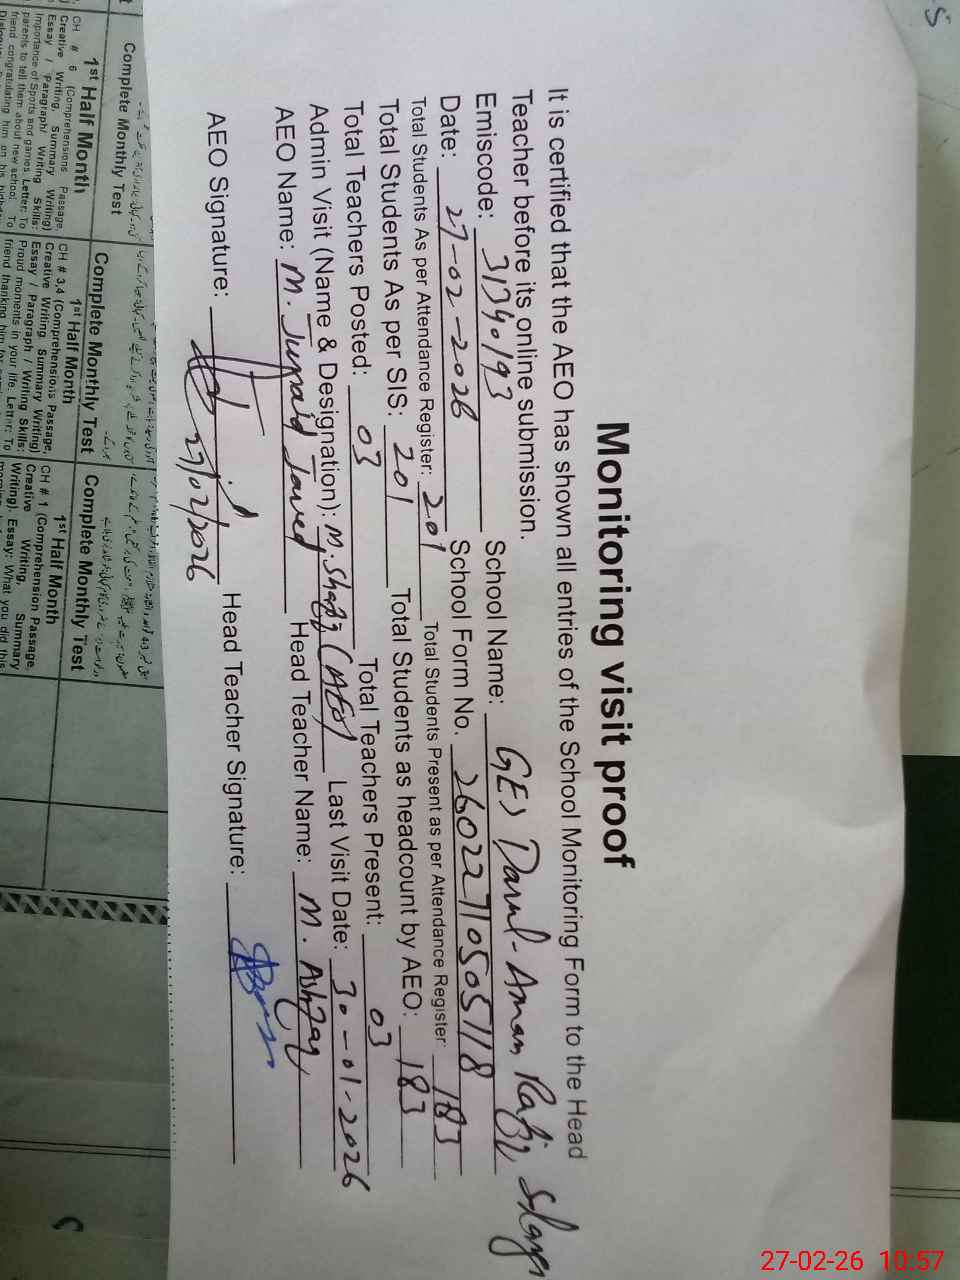 Monitoring visit proof
It is certified that the AEO has shown all entries of the School Monitoring Form to the Head
Teacher before its online submission.
Emiscode: 31340193 School Name: GES Darul-Aman Rafiq
Date: 27-02-2026 School Form No. 260227105051118
Total Students As per Attendance Register: 201 Total Students Present as per Attendance Register: 183
Total Students As per SIS: 201 Total Students as headcount by AEO: 183
Total Teachers Posted: 03 Total Teachers Present: 03
Admin Visit (Name & Designation): M. Shafiq (AEO) Last Visit Date: 30-01-2026
AEO Name: M. Junaid Javed Head Teacher Name: M. Ashfaq
AEO Signature: 27/02/2026 Head Teacher Signature:
Complete Monthly Test
1st Half Month
CH # 6 (Comprehensions Passage,
Creative Writing, Summary Writing)
Essay / Paragraph/ Writing Skills:
Importance of Sports and games. Letter: To
parents to tell them about new school. To
friend congratulating him on his
Complete Monthly Test
1st Half Month
CH # 3,4 (Comprehensions Passage,
Creative Writing Summary Writing)
Essay / Paragraph / Writing Skills:
Proud moments in your life. Letter: To
friend thanking him for
Complete Monthly Test
1st Half Month
CH # 1 (Comprehension Passage,
Creative Writing, Summary
Writing). Essay: What you did this
27-02-26 10:57